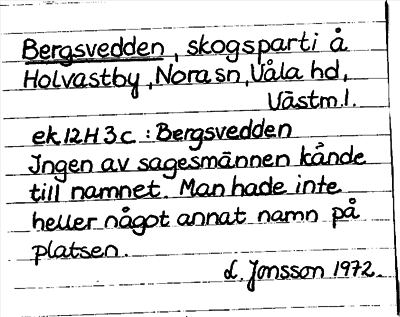 Bergsvedden, skogsparti å
Holvastby, Nora sn, Våla hd,
Västm.l.
ek 12H 3c : Bergsvedden
Ingen av sagesmännen kände
till namnet. Man hade inte
heller något annat namn på
platsen.
L. Jonsson 1972.